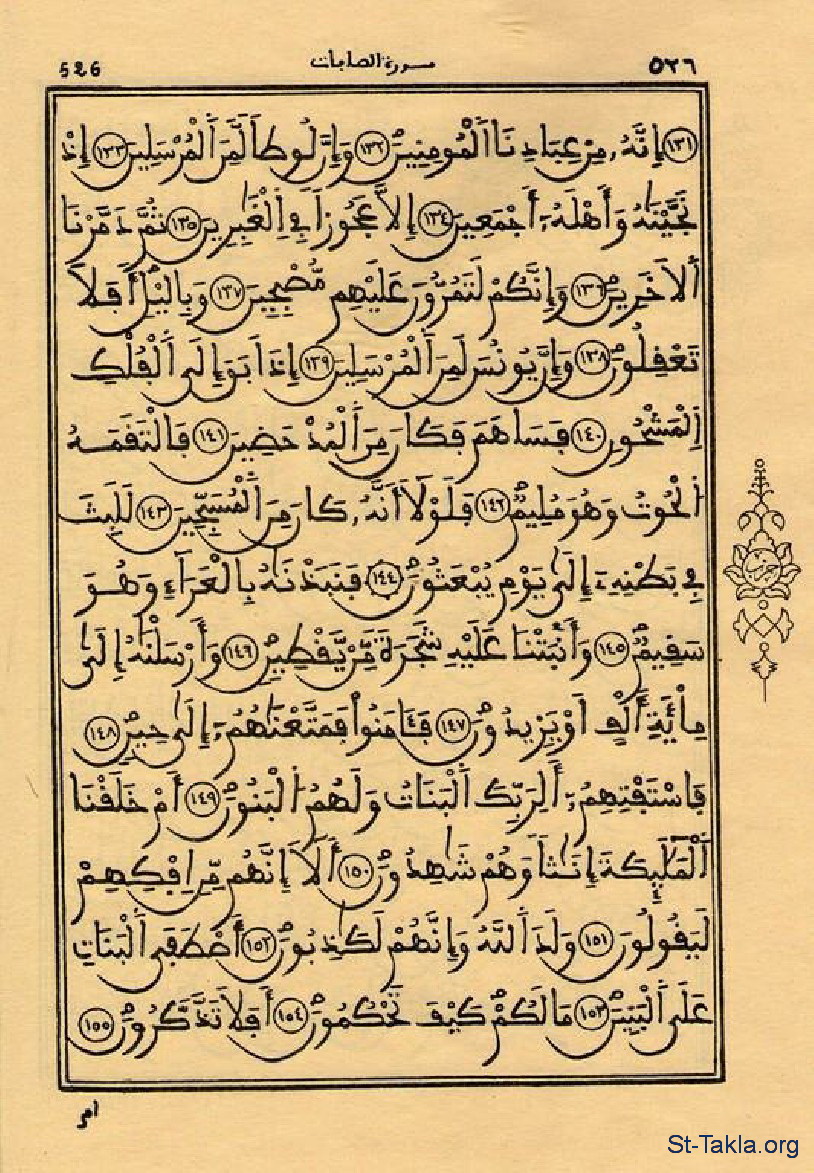 526 سورة الصافات ٥٢٦
(١٣١) إِنَّهُۥ مِنْ عِبَادِنَا اَ۬لْمُومِنِينَۖ (١٣٢) وَإِنَّ لُوطاٗ لَّمِنَ اَ۬لْمُرْسَلِينَ (١٣٣) إِذْ
نَجَّيْنَٰهُ وَأَهْلَهُۥٓ أَجْمَعِينَ (١٣٤) إِلَّا عَجُوزاٗ فِے اِ۬لْغَٰبِرِينَ (١٣٥) ثُمَّ دَمَّرْنَا
اَ۬لَاخَرِينَۖ (١٣٦) وَإِنَّكُمْ لَتَمُرُّونَ عَلَيْهِم مُّصْبِحِينَ (١٣٧) وَبِاليْلِۖ أَفَلَا
تَعْقِلُونَۖ (١٣٨) وَإِنَّ يُونُسَ لَمِنَ اَ۬لْمُرْسَلِينَ (١٣٩) إِذَ اَبَقَ إِلَى اَ۬لْفُلْكِ
اِ۬لْمَشْحُونِ (١٤٠) فَسَاهَمَ فَكَانَ مِنَ اَ۬لْمُدْحَضِينَ (١٤١) فَالْتَقَمَهُ
اُ۬لْحُوتُ وَهُوَ مُلِيمٞۖ (١٤٢) فَلَوْلَآ أَنَّهُۥ كَانَ مِنَ اَ۬لْمُسَبِّحِينَ (١٤٣) لَلَبِثَ
فِے بَطْنِهِۦٓ إِلَىٰ يَوْمِ يُبْعَثُونَۖ (١٤٤) فَنَبَذْنَٰهُ بِالْعَرَآءِ وَهُوَ
سَقِيمٞۖ (١٤٥) وَأَنۢبَتْنَا عَلَيْهِ شَجَرَةٗ مِّنْ يَّقْطِينٖۖ (١٤٦) وَأَرْسَلْنَٰهُ إِلَىٰ
مِاْئَةِ أَلْفٍ اَوْ يَزِيدُونَۖ (١٤٧) فَـَٔامَنُواْ فَمَتَّعْنَٰهُمُۥٓ إِلَىٰ حِينٖۖ (١٤٨)
فَاسْتَفْتِهِمُۥٓ أَلِرَبِّكَ اَ۬لْبَنَاتُ وَلَهُمُ اُ۬لْبَنُونَۖ (١٤٩) أَمْ خَلَقْنَا
اَ۬لْمَلَٰٓئِكَةَ إِنَٰثاٗ وَهُمْ شَٰهِدُونَۖ (١٥٠) أَلَآ إِنَّهُم مِّنِ اِفْكِهِمْ
لَيَقُولُونَ (١٥١) وَلَدَ اَ۬للَّهُ وَإِنَّهُمْ لَكَٰذِبُونَۖ (١٥٢) أَصْطَفَى اَ۬لْبَنَاتِ
عَلَى اَ۬لْبَنِينَۖ (١٥٣) مَا لَكُمْ كَيْفَ تَحْكُمُونَۖ (١٥٤) أَفَلَا تَذَّكَّرُونَۖ (١٥٥)
أم
St-Takla.org